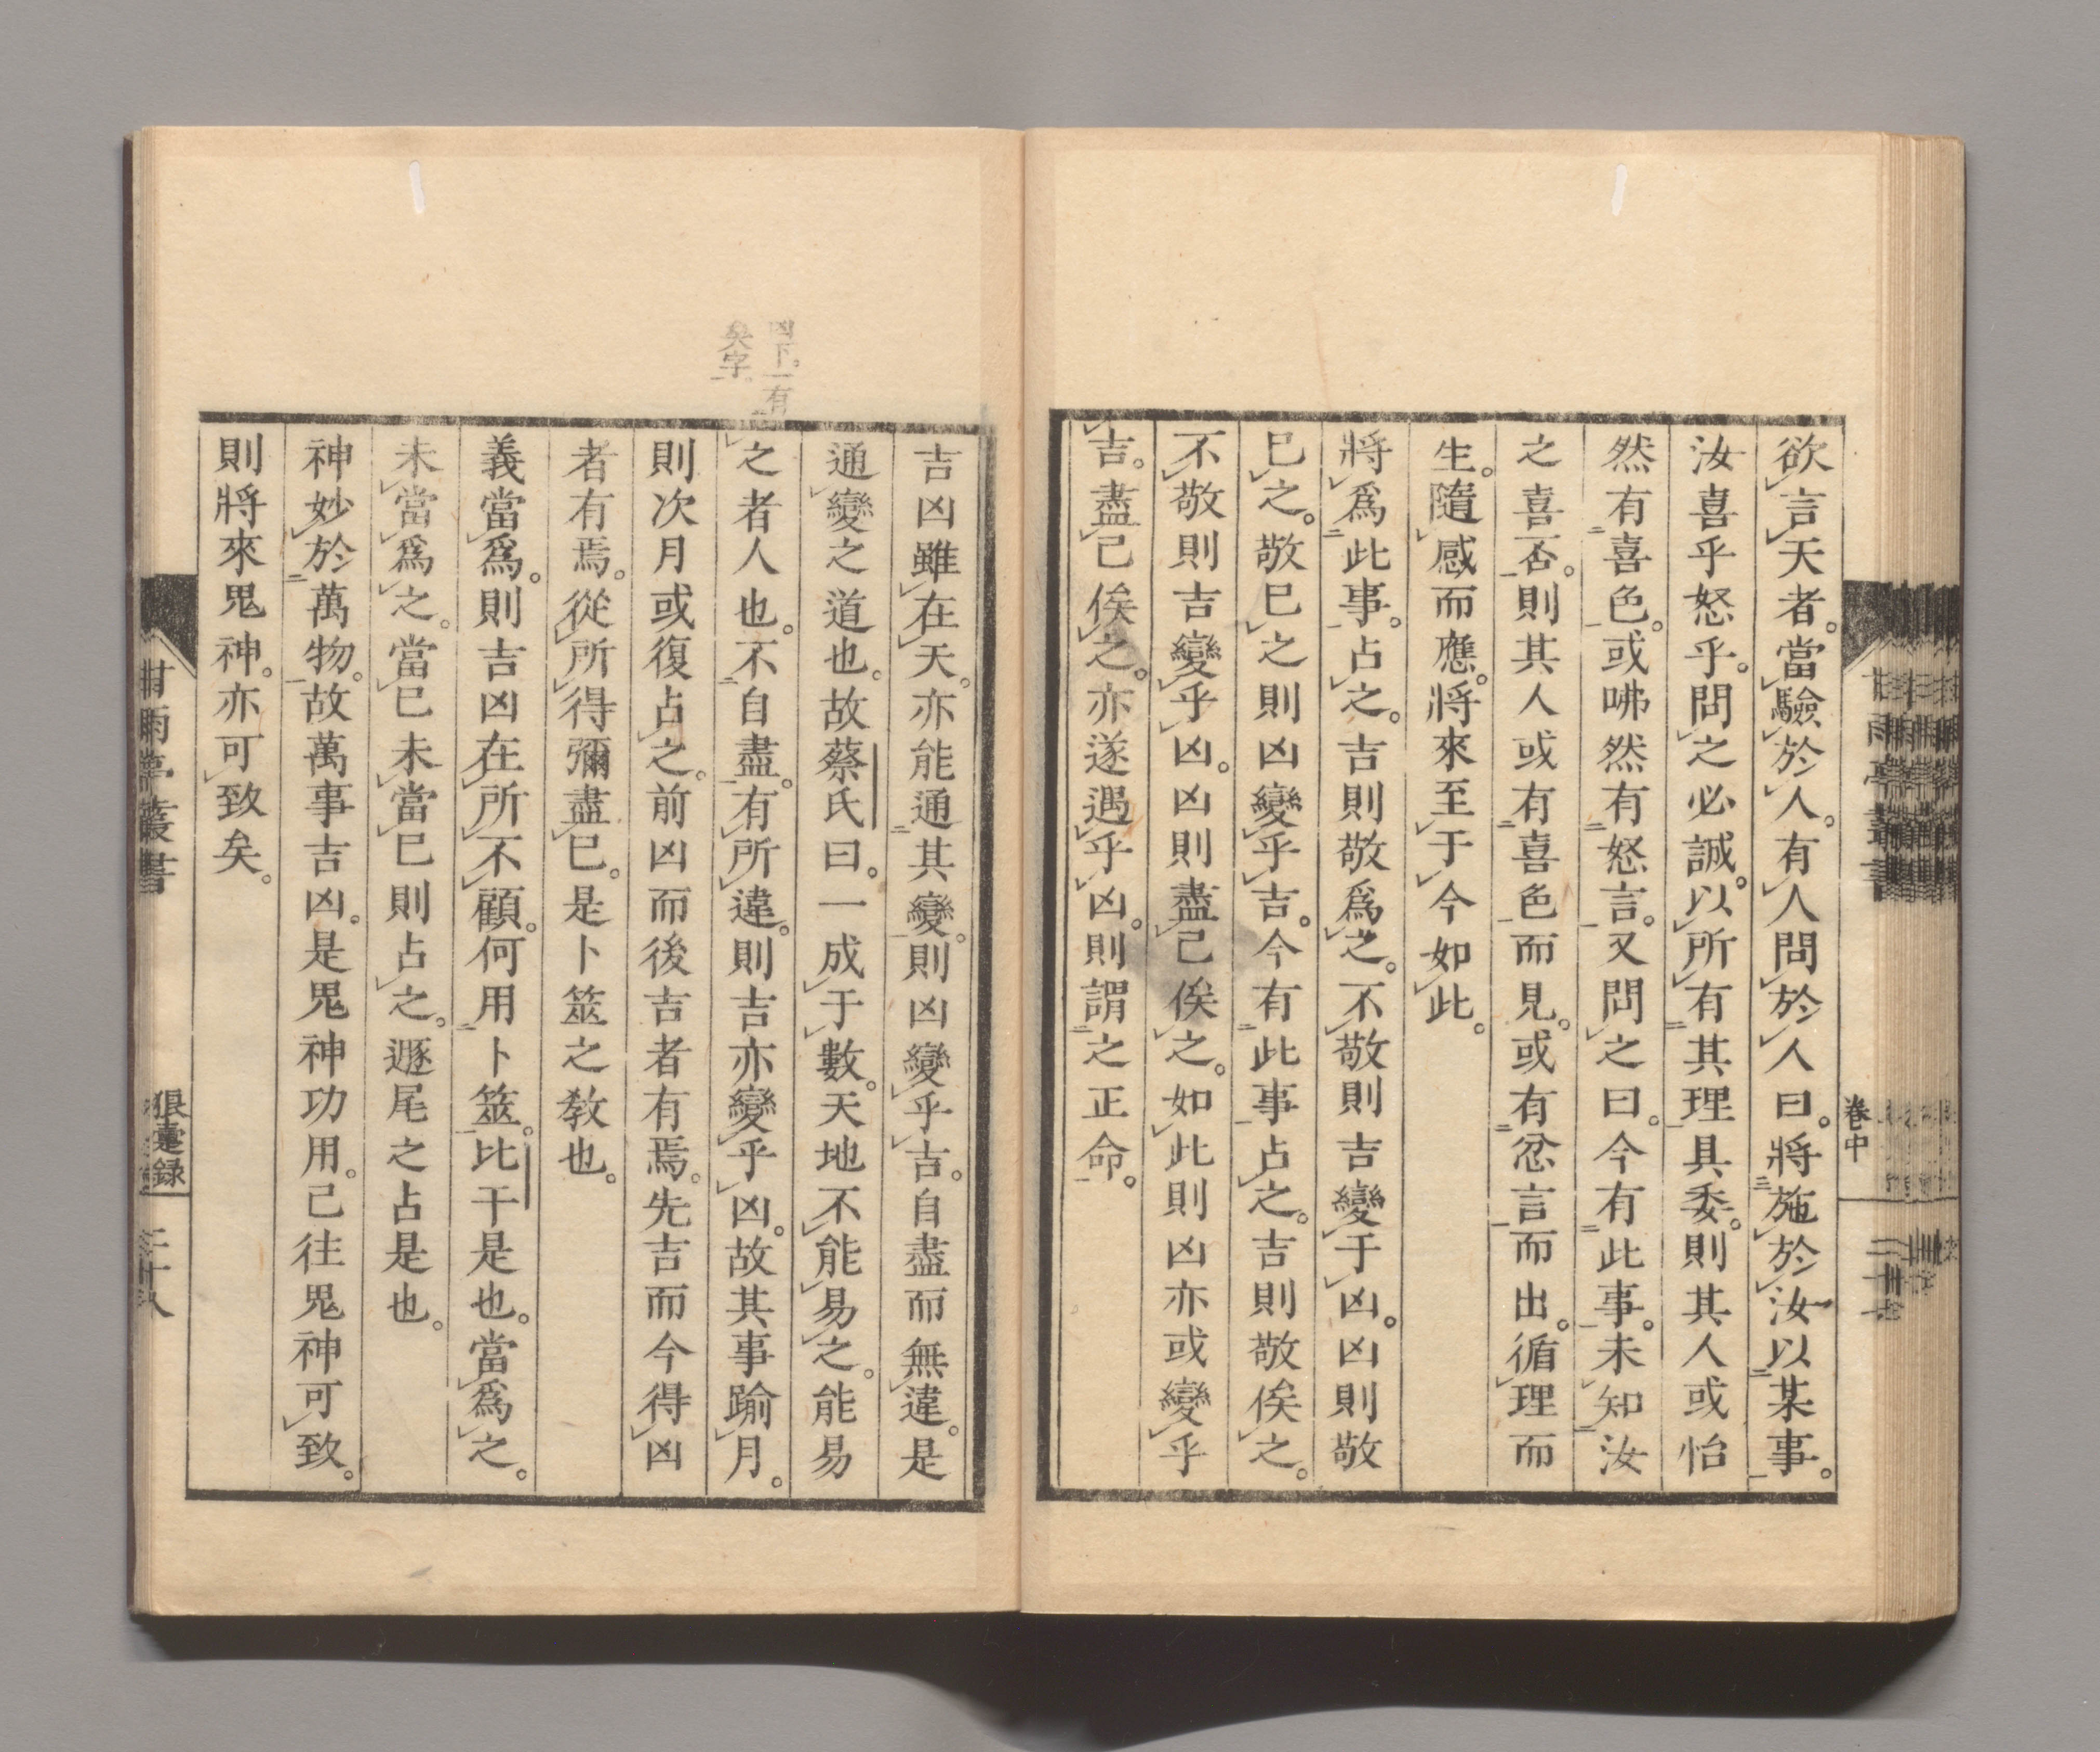 欲言天者。當驗於人。有人問於人曰。將施於汝以某事。
汝喜乎怒乎。問之必誠。以所有其理具委。則其人或怡
然有喜色。或咈然有怒言。又問之曰。今有此事。未知汝
之喜否。則其人或有喜色而見。或有忿言而出。循理而
生。隨感而應。將來至于今如此。
將爲此事。占之。吉則敬爲之。不敬則吉變于凶。凶則敬
已之。敬已之則凶變乎吉。今有此事占之。吉則敬俟之。
不敬則吉變乎凶。凶則盡己俟之。如此則凶亦或變乎
吉。盡己俟之。亦遂遇乎凶。則謂之正命。
卷中
凶下。一有
矣字。
吉凶雖在天。亦能通其變。則凶變乎吉。自盡而無違。是
通變之道也。故蔡氏曰。一成于數。天地不能易之。能易
之者人也。不自盡。有所違。則吉亦變乎凶。故其事踰月。
則次月或復占之。前凶而後吉者有焉。先吉而今得凶
者有焉。從所得彌盡已。是卜筮之敎也。
義當爲。則吉凶在所不顧。何用卜筮。比干是也。當爲之。
未當爲之。當已未當已則占之。遯尾之占是也。
神妙於萬物。故萬事吉凶。是鬼神功用。已往鬼神可致。
則將來鬼神。亦可致矣。
甘雨亭叢書
狼疐録
二十八